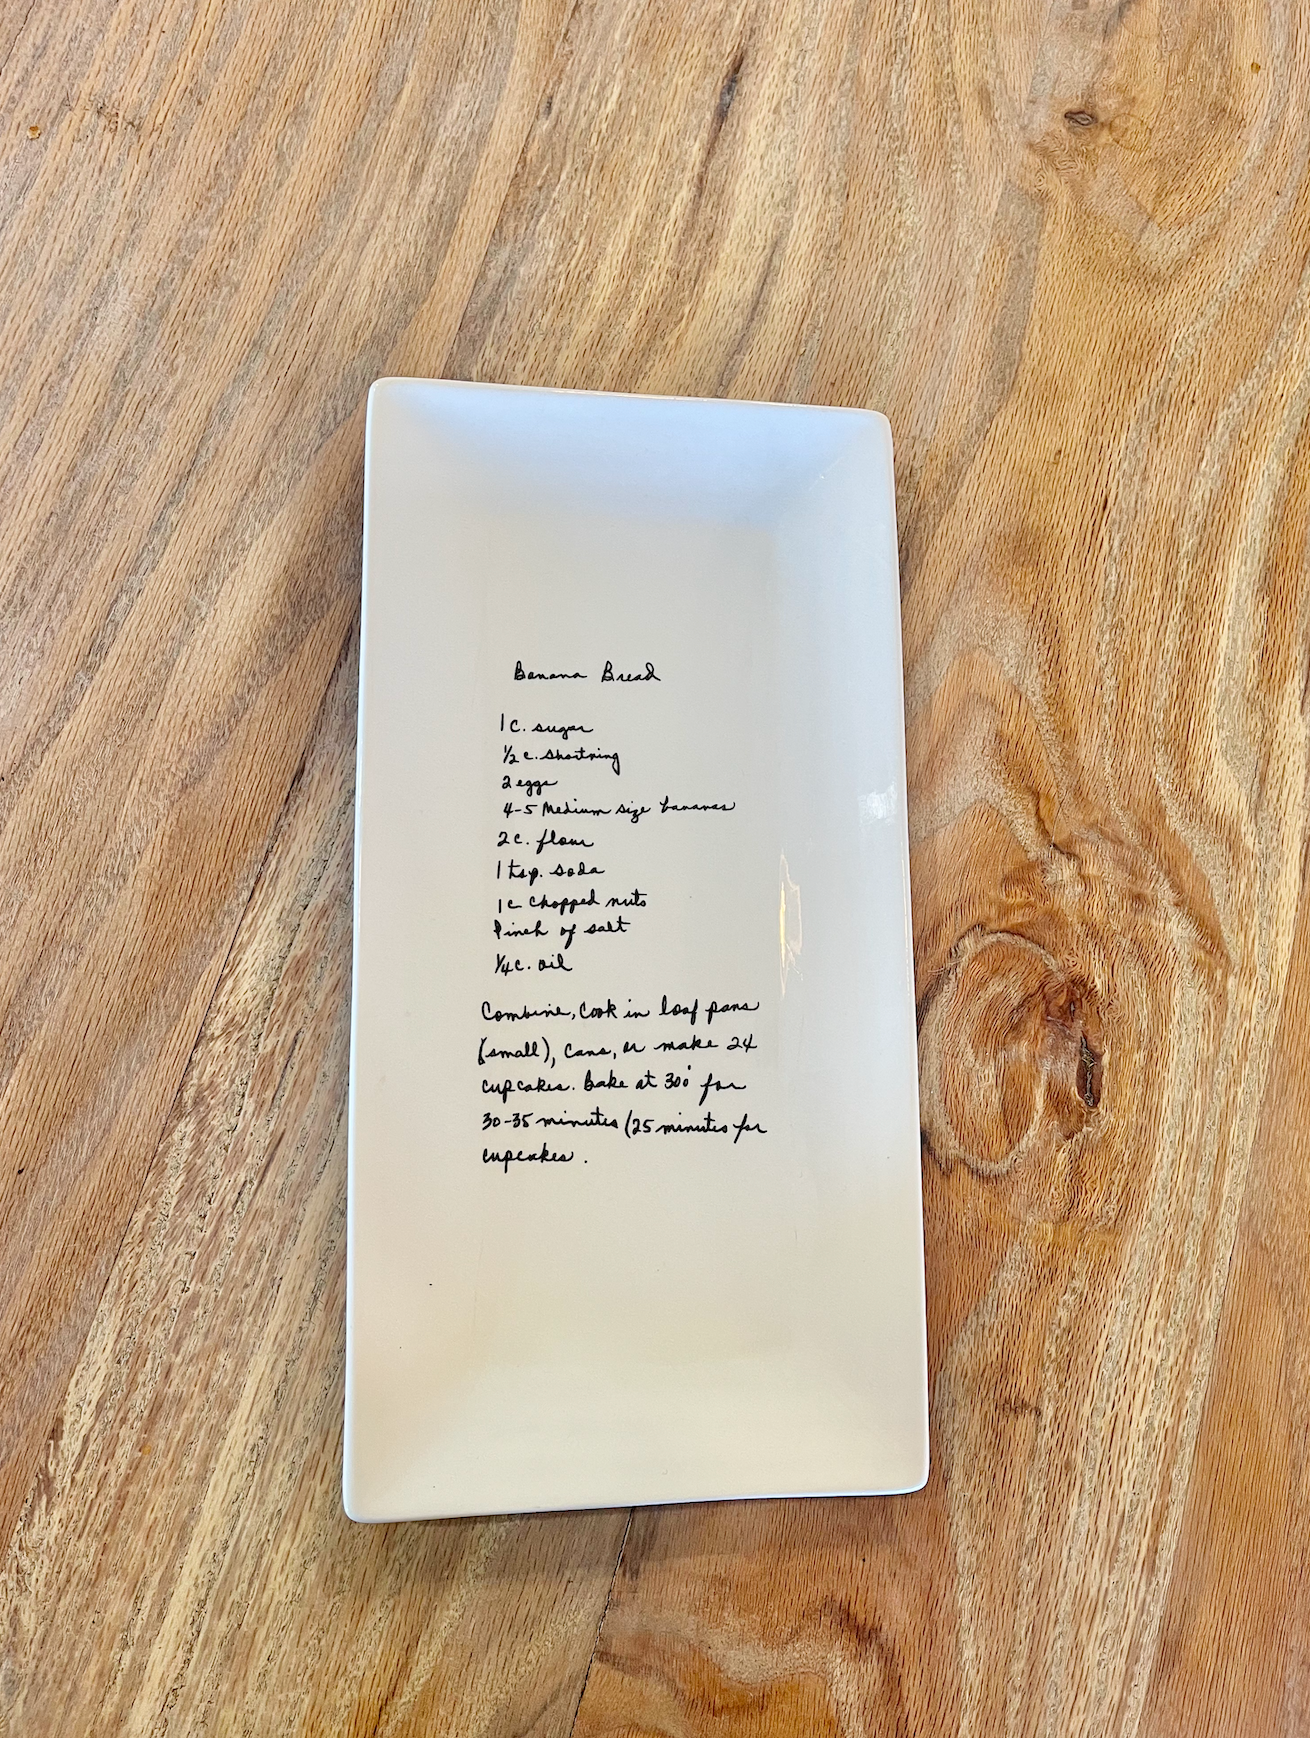 Banana Bread
1 c. sugar
1/2 c. shortning
2 eggs
4-5 Medium size bananas
2 c. flour
1 tsp. soda
1 c chopped nuts
Pinch of salt
1/4 c. oil
Combine, Cook in loaf pans
(small), cans, or make 24
cupcakes. Bake at 300° for
30-35 minutes (25 minutes for
cupcakes.